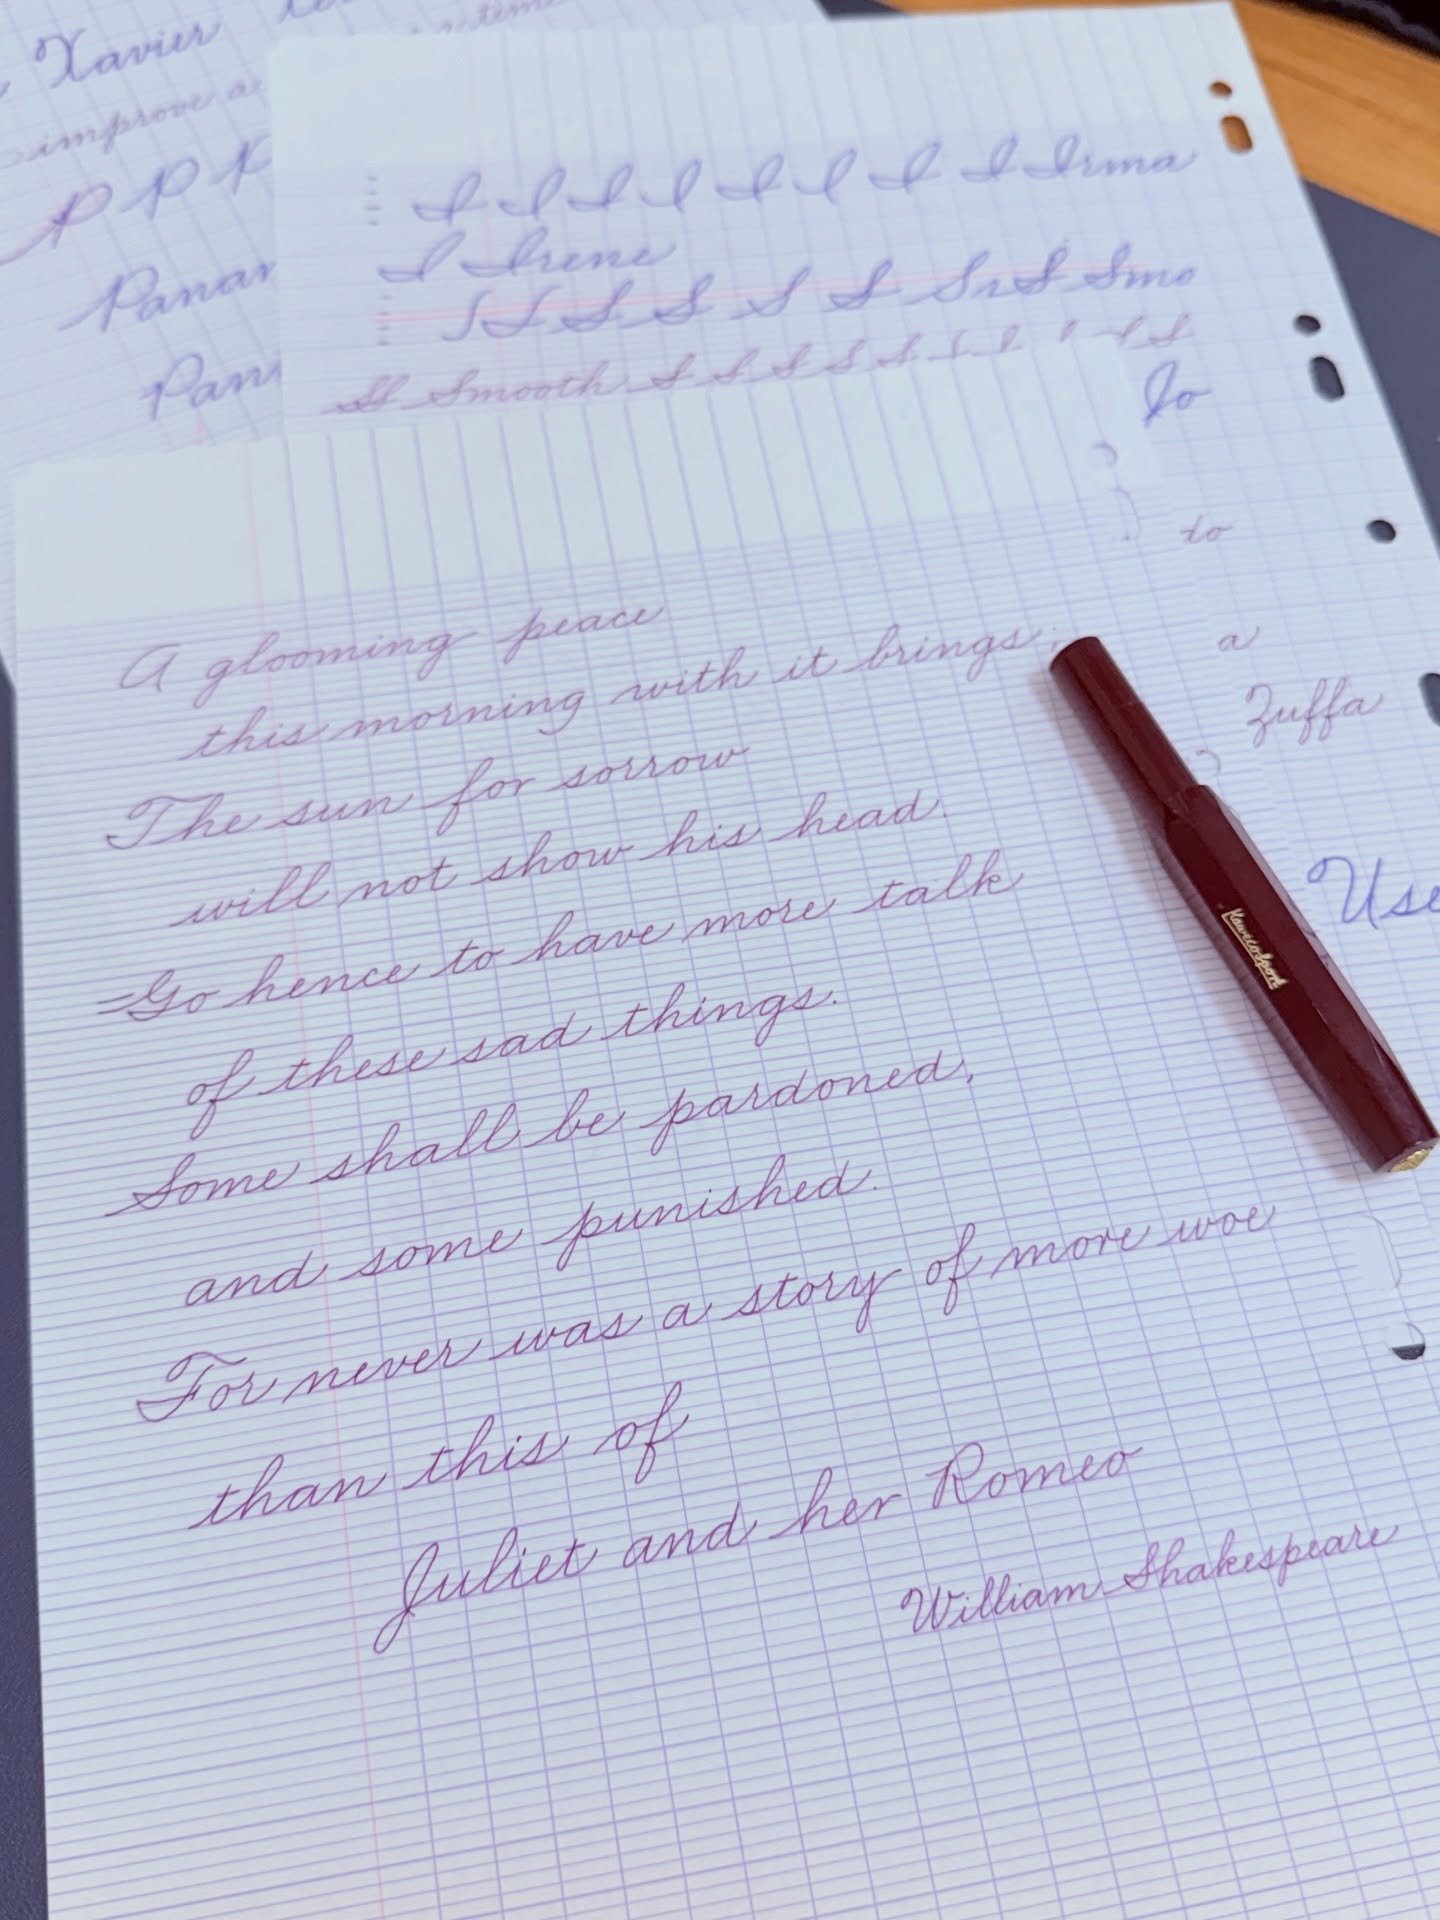 Xavier
improve a
P P K
Panam
Pana
I I I I I I I I Irma
I Irene
S S S S S S Sn S Smo
Smooth S S S S S S S S S
Jo
to
a
Zuffa
Use
A glooming peace
this morning with it brings;
The sun for sorrow
will not show his head.
=Go hence to have more talk
of these sad things.
Some shall be pardoned,
and some punished.
For never was a story of more woe
than this of
Juliet and her Romeo
William Shakespeare
Kaweco Sport